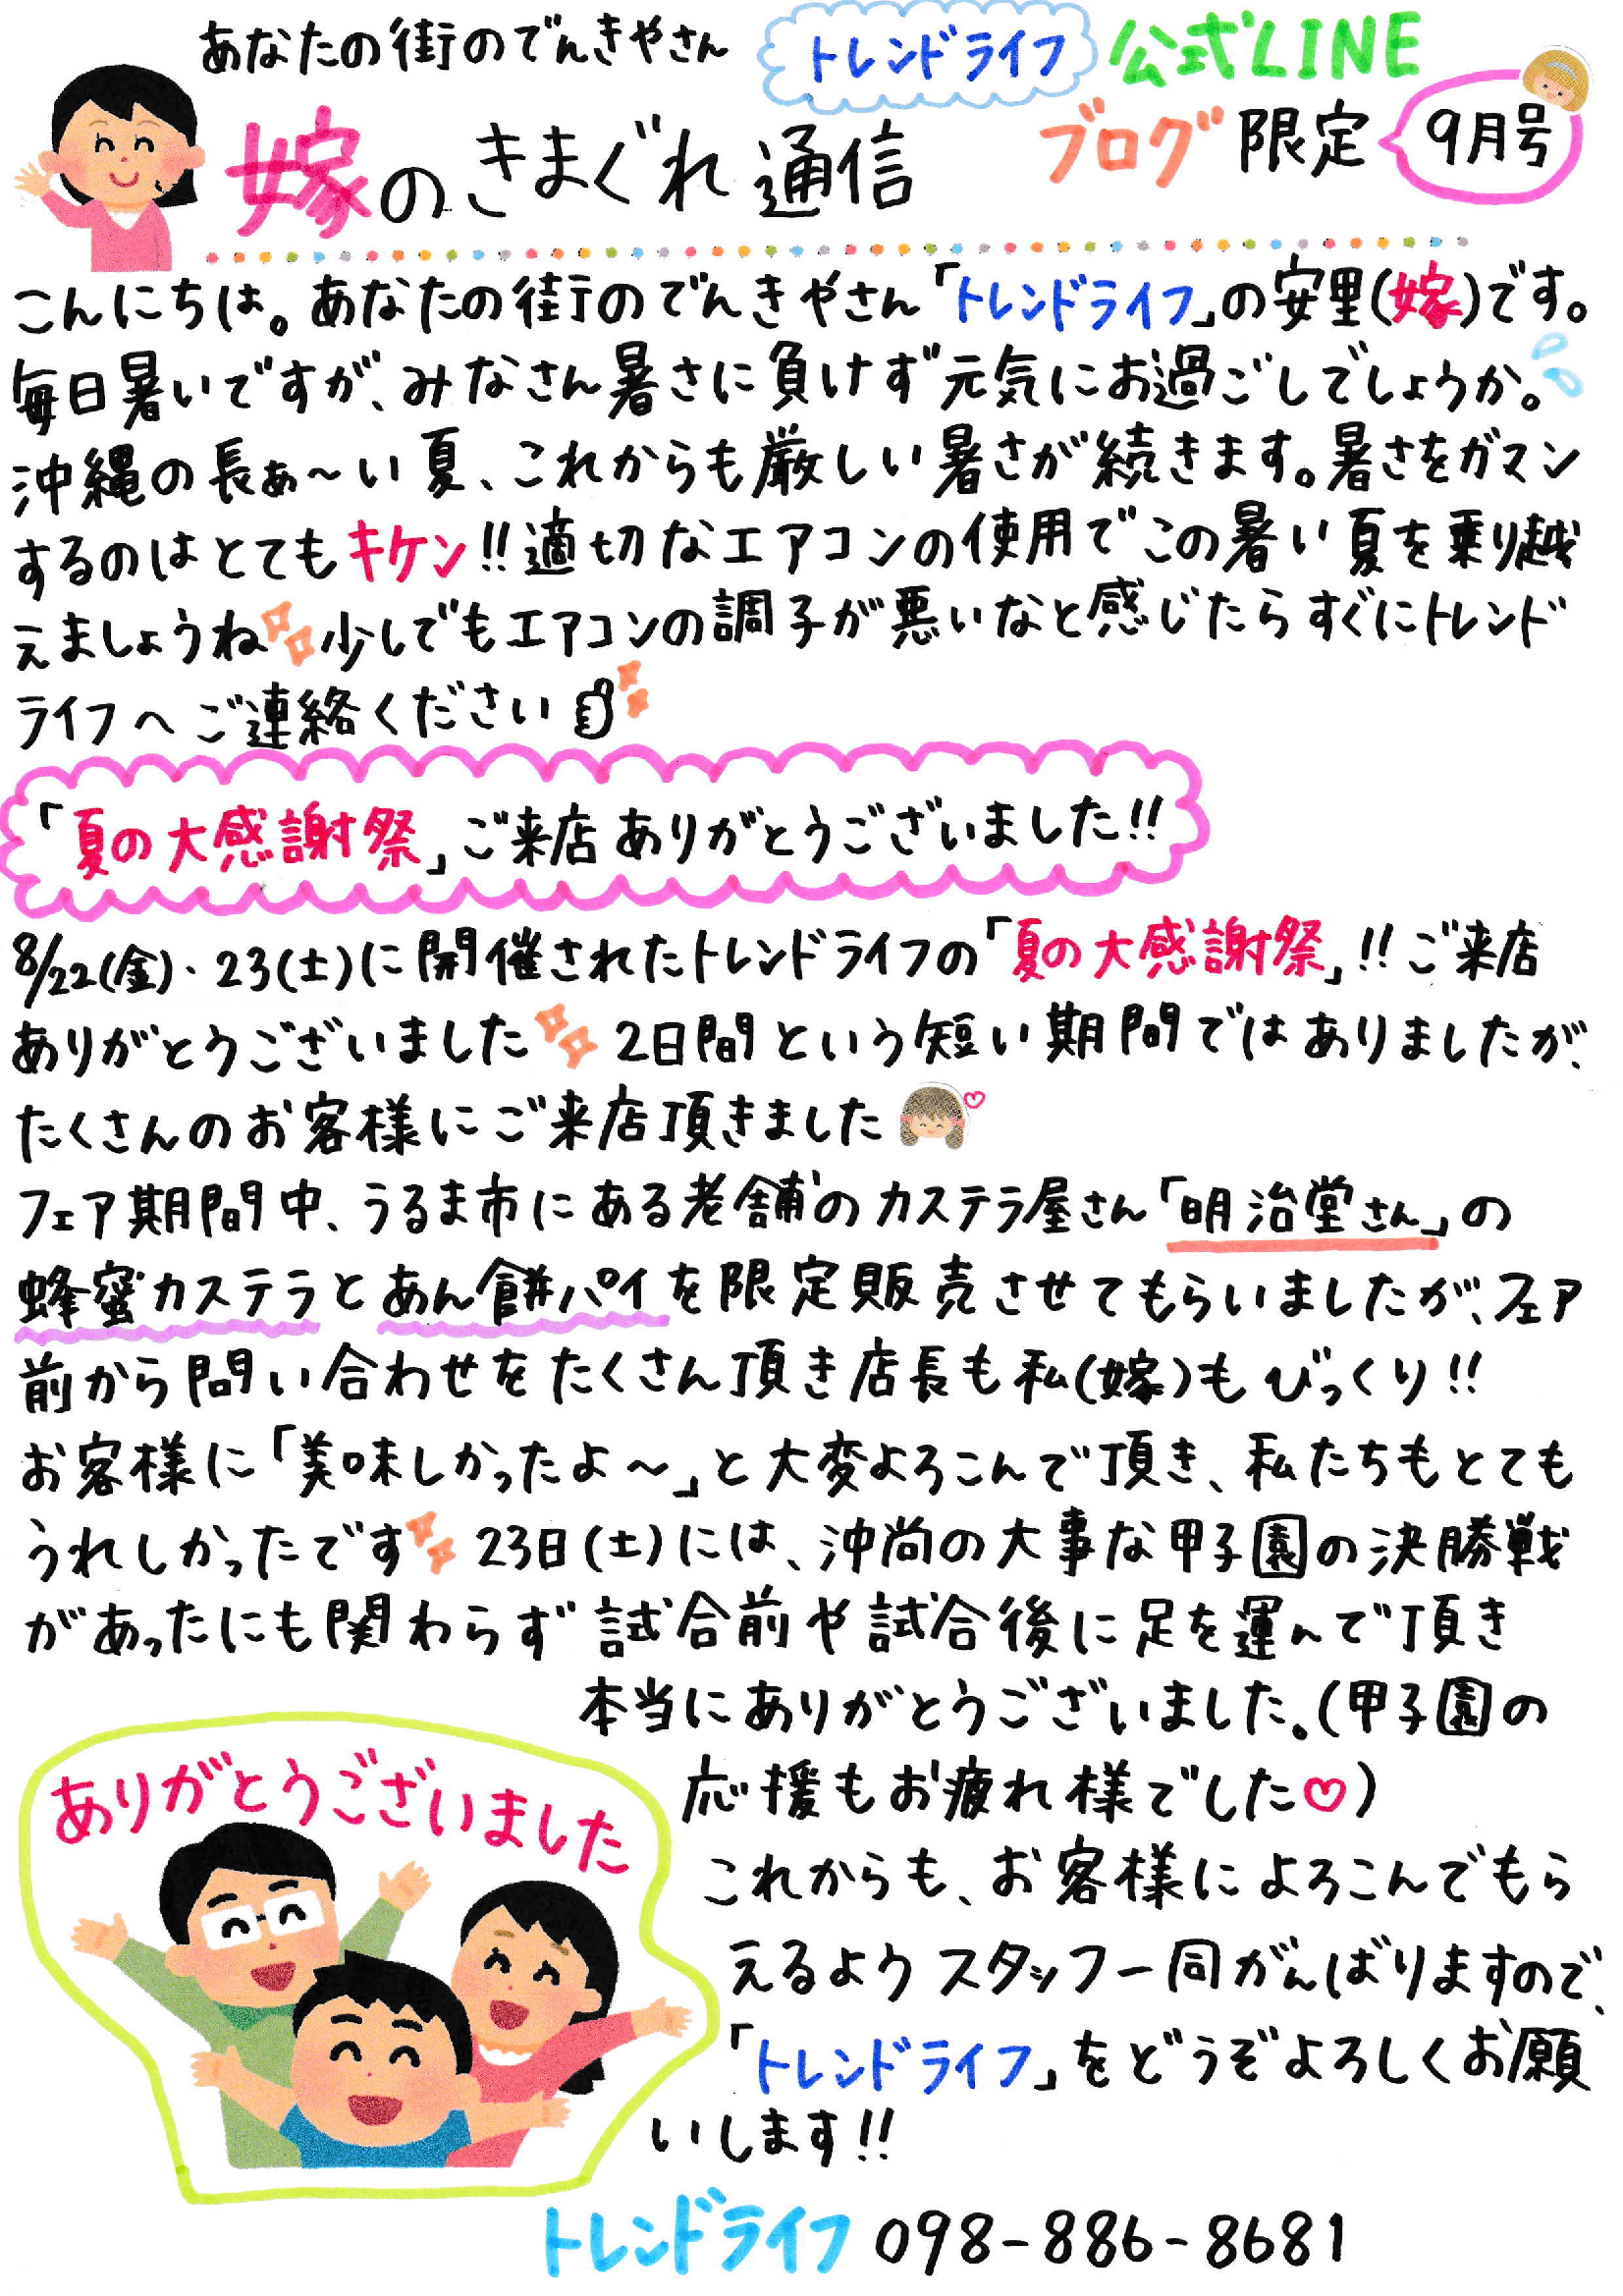 あなたの街のでんきやさん トレンドライフ 公式LINE
嫁のきまぐれ通信 ブログ限定 9月号
こんにちは。あなたの街のでんきやさん「トレンドライフ」の安里(嫁)です。
毎日暑いですが、みなさん暑さに負けず元気にお過ごしでしょうか。
沖縄の長ぁ〜い夏、これからも厳しい暑さが続きます。暑さをガマン
するのはとてもキケン!!適切なエアコンの使用でこの暑い夏を乗り越
えましょうね 少しでもエアコンの調子が悪いなと感じたらすぐにトレンド
ライフへご連絡ください
「夏の大感謝祭」ご来店ありがとうございました!!
8/22(金)・23(土)に開催されたトレンドライフの「夏の大感謝祭」!!ご来店
ありがとうございました 2日間という短い期間ではありましたが、
たくさんのお客様にご来店頂きました♡
フェア期間中、うるま市にある老舗のカステラ屋さん「明治堂さん」の
蜂蜜カステラとあん餅パイを限定販売させてもらいましたが、フェア
前から問い合わせをたくさん頂き店長も私(嫁)もびっくり!!
お客様に「美味しかったよ〜」と大変よろこんで頂き、私たちもとても
うれしかったです 23日(土)には、沖尚の大事な甲子園の決勝戦
があったにも関わらず試合前や試合後に足を運んで頂き
本当にありがとうございました。(甲子園の
応援もお疲れ様でした♡)
これからも、お客様によろこんでもら
えるようスタッフ一同がんばりますので、
「トレンドライフ」をどうぞよろしくお願
いします!!
ありがとうございました
トレンドライフ 098-886-8681